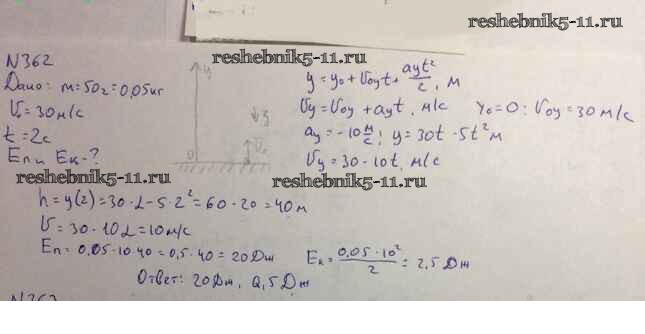 reshebnik5-11.ru
reshebnik5-11.ru
N362
Дано: m=50г=0,05кг
V₀=30м/с
t=2с
Eп и Eк-?
y
g
V₀
0
y=y₀+V₀yt+ayt²/2, м
Vy=V₀y+ayt, м/с y₀=0; V₀y=30м/с
ay=-10 м/с; y=30t-5t² м
Vy=30-10t, м/с
reshebnik5-11.ru
reshebnik5-11.ru
h=y(2)=30·2-5·2²=60-20=40м
V=30-10·2=10м/с
Eп=0,05·10·40=0,5·40=20Дж Eк=0,05·10²/2=2,5Дж
Ответ: 20Дж, 2,5Дж
N363